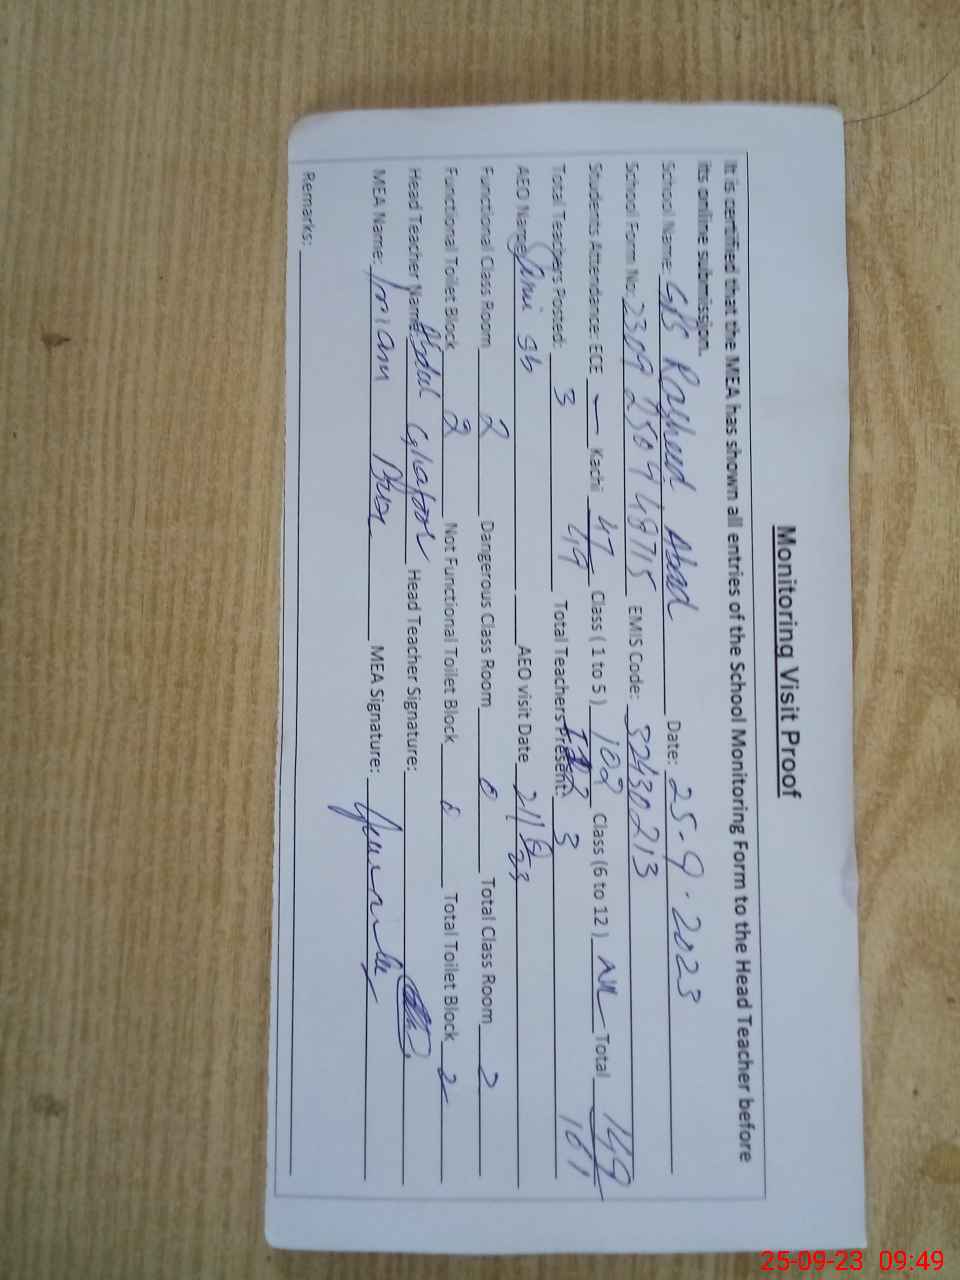 Monitoring Visit Proof
It is certified that the MEA has shown all entries of the School Monitoring Form to the Head Teacher before
its online submission.
School Name: GPS Rasheed Abad Date: 25-9-2023
School Form No: 2309 2509 48715 EMIS Code: 32430213
Students Attendance: ECE — Kachi 47/49 Class ( 1 to 5 ) 102 Class (6 to 12 ) NIL Total 149/161
Total Teachers Posted: 3 Total Teachers Present: 3
AEO Name: sb AEO visit Date 21/8/23
Functional Class Room 2 Dangerous Class Room 0 Total Class Room 2
Functional Toilet Block 2 Not Functional Toilet Block 0 Total Toilet Block 2
Head Teacher Name: Abdul Ghafoor Head Teacher Signature:
MEA Name: MEA Signature:
Remarks:
25-09-23 09:49